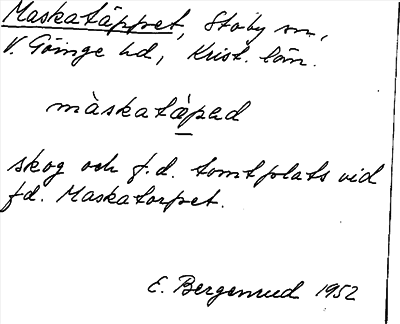 Maskatäppet, Stoby sn,
V. Göinge hd, Krist. län.
màskatæpad
skog och f.d. tomtplats vid
fd. Maskatorpet.
E. Bergenrud 1952